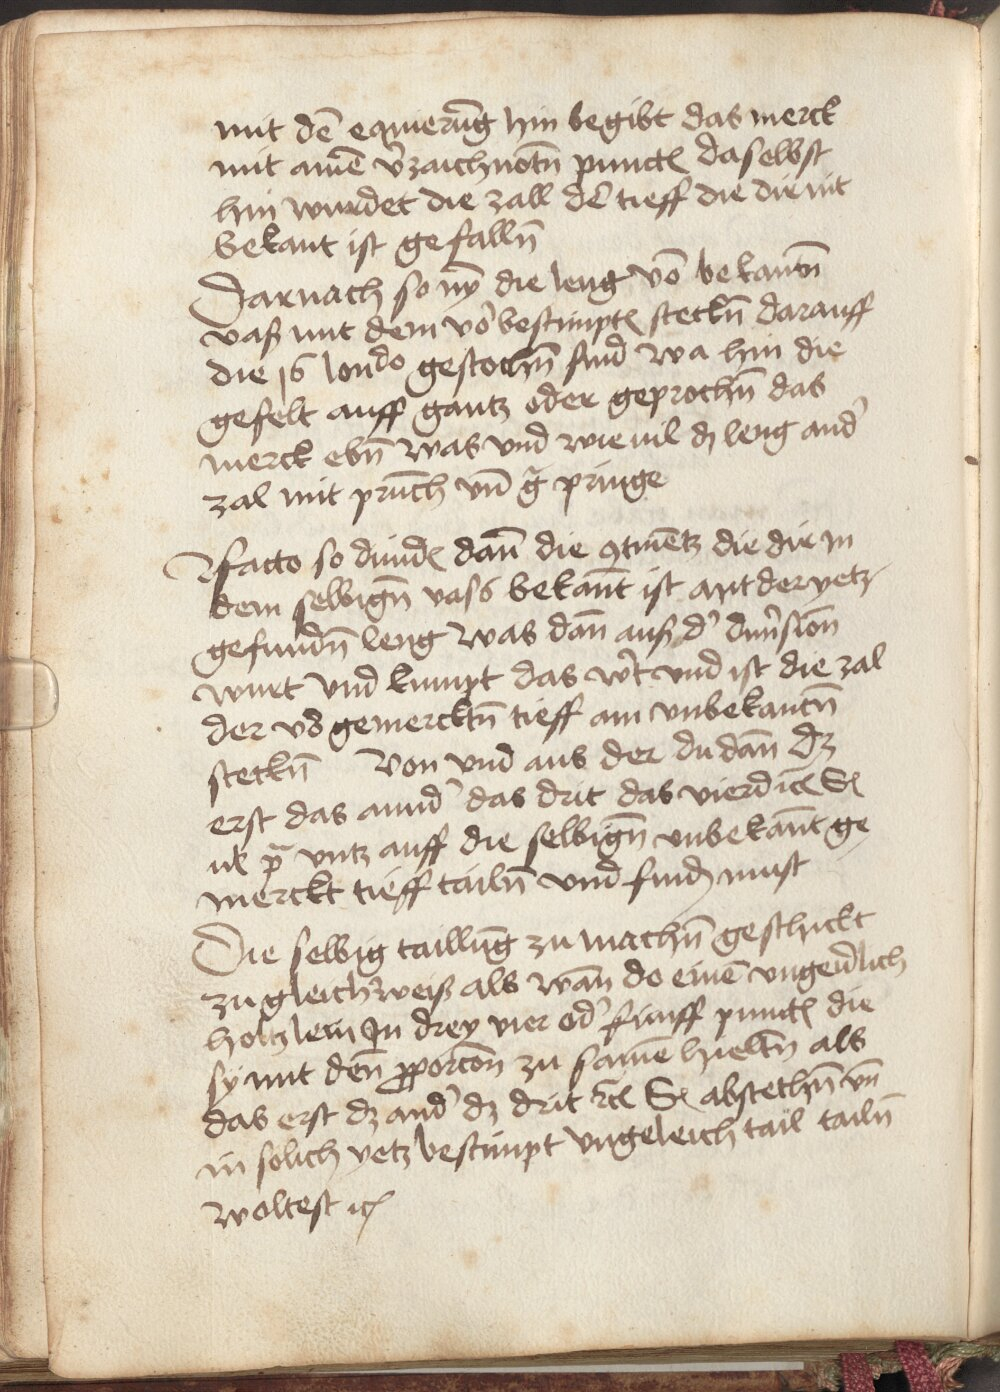 mit dē eqnierūg hin begibt das merck
mit ainē v̉zaichnotn̄ punctꝭ daselbst
hin wurdet die zall dē tieff die dir nit
bekant ist gefalln̄
Darnach so nȳ die leng vō bekantn̄
vaß mit dem vo᷑bestimptꝭ steckn̄ darauff
die gestochn̄ sind wa hin die
gefelt auff gantz oder geprochn̄ das
merck ebn̄ was vnd wie vil dʒ leng and᷑
zal mit prūch vn̄ pringe
facto so diuidꝭ dan̄ die die dir in
dem selbign̄ vass bekan̄t ist mit der yetz
gefundn̄ leng was dan̄ auß d᷑ diuision
wurt vnd kumpt das w᷑t vnd ist die zal
der vo᷑gemercktn̄ tieff am vnbekantn̄
steckn̄ Von vnd aus der du dan̄ dʒ
erst das annd᷑ das drit das vierd ꝛcꝭ
vntz auff die selbign̄ vnbekan̄t ge
merckt tieff tailn̄ vnd findꝭ must
Die selbig taillūg zu machn̄ geschickt
zu gleich᷑weiß als wan̄ do einē vngeu᷑lich
holtzlein In drey vier od᷑ fünff punctꝭ die
sy mit den̄ ꝓporcōn zu samē hieltn̄ als
das erst dʒ and᷑ dʒ drit ꝛcꝭ abstechn̄ vn̄
in solich yetz bestimpt vngeleich tail tailn̄
woltest ꝛcꝭ